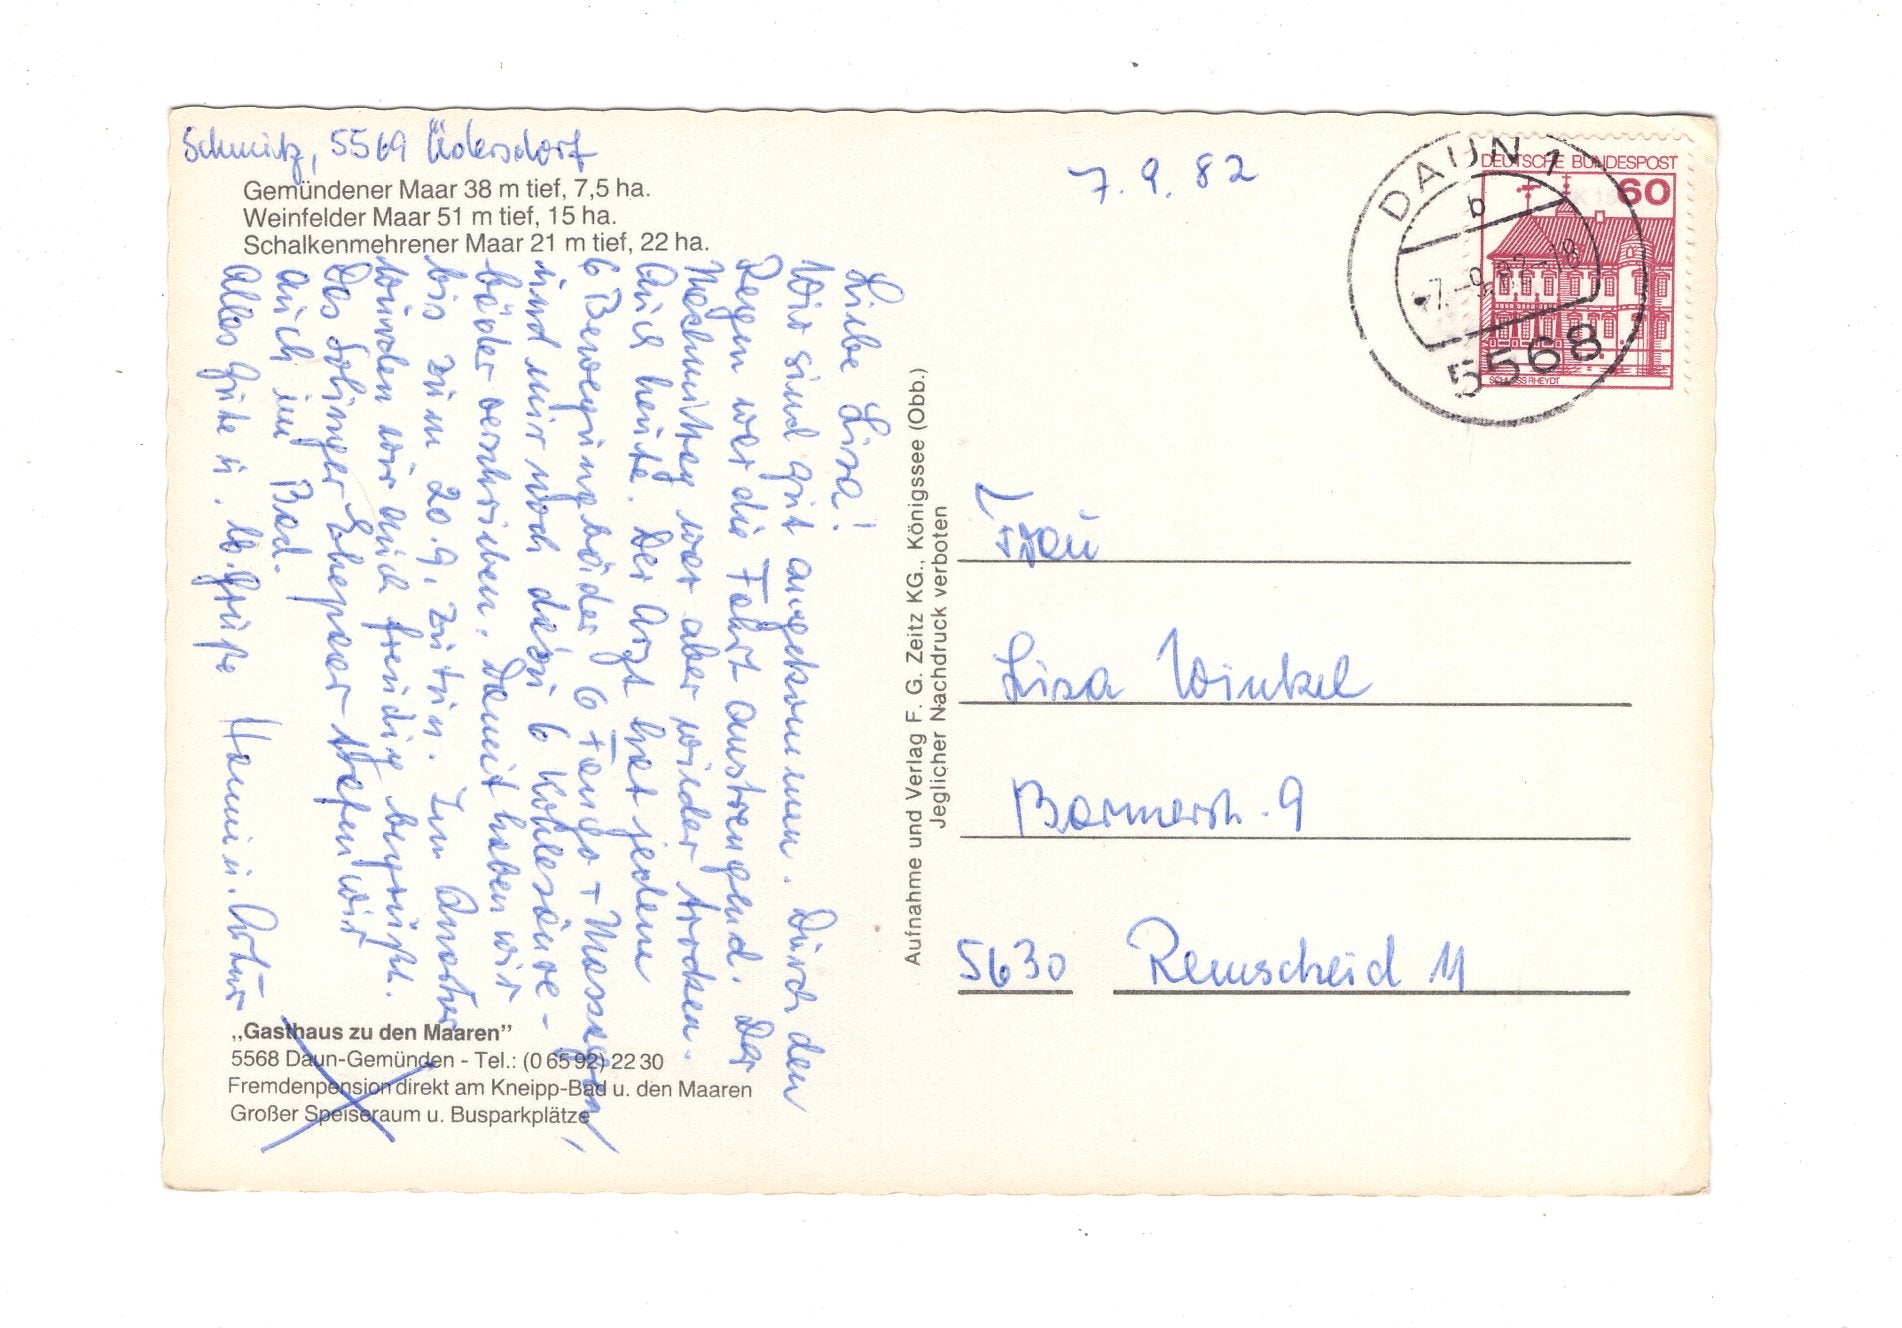 Schmitz, 5569 Üdersdorf
Gemündener Maar 38 m tief, 7,5 ha.
Weinfelder Maar 51 m tief, 15 ha.
Schalkenmehrener Maar 21 m tief, 22 ha.
7. 9. 82
Liebe Lisa!
Wir sind gut angekommen. Durch den
Regen war die Fahrt anstrengend. Der
Nachmittag war aber wieder trocken.
Auch heute. Der Arzt hat jedem
6 Bewegungsbäder 6 Fango + Massagen,
und mir noch dazu 6 Kohlesäure-
bäder verschrieben. Damit haben wir
bis zum 20.9. zu tun. Im
wurden wir auch freudig begrüßt.
Das Solinger Ehepaar trafen wir
auch im Bad.
Alles Gute u. lb. Grüße Hanni u. Artur
„Gasthaus zu den Maaren”
5568 Daun-Gemünden - Tel.: (0 65 92) 22 30
Fremdenpension direkt am Kneipp-Bad u. den Maaren
Großer Speiseraum u. Busparkplätze
Aufnahme und Verlag F. G. Zeitz KG., Königssee (Obb.)
Jeglicher Nachdruck verboten
DEUTSCHE BUNDESPOST
60
SCHLOSS RHEYDT
DAUN 1
b
-7.-9.82-18
5568
Frau
Lisa Winkel
Barmerstr. 9
5630 Remscheid 11